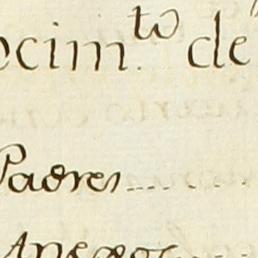 ocim.to de
Padres